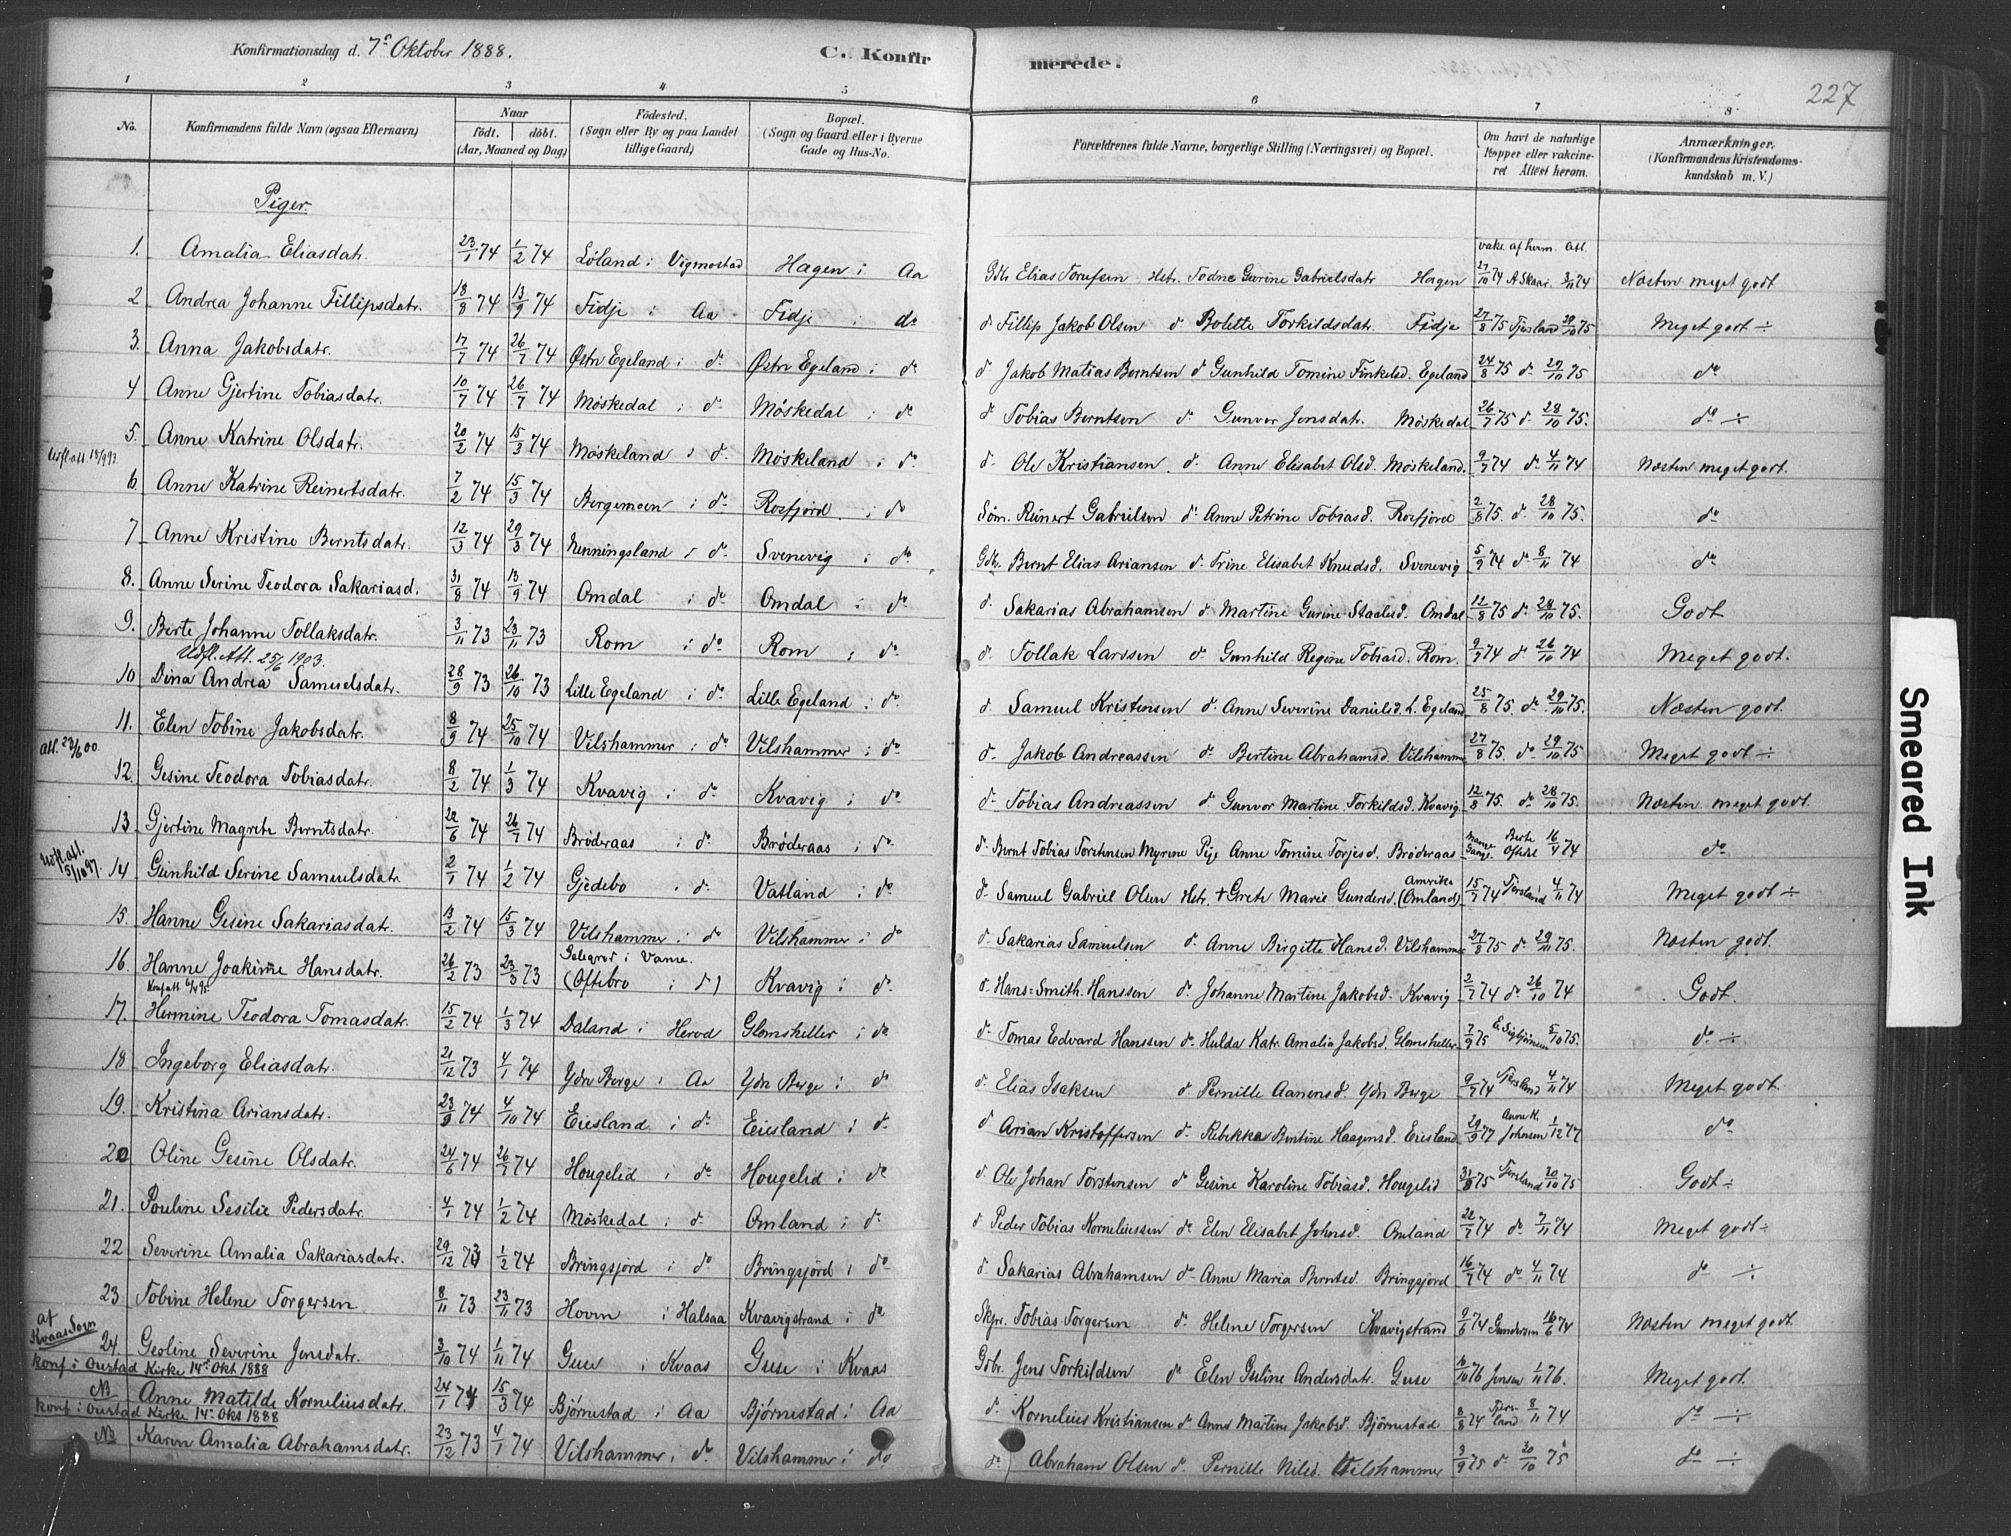 Konfirmationsdag d. 7de Oktober 1888. C. Konfirmerede. 227
1 2 3 4 5 6 7 8
No. Konfirmandens fulde Navn (ogsaa Efternavn) Naar født. døbt. (Aar, Maaned og Dag) Fødested. (Sogn eller By og paa Landet tillige Gaard) Bopæl. (Sogn og Gaard eller i Byerne Gade og Hus-No. Forældrenes fulde Navne, borgerlige Stilling (Næringsvei) og Bopæl. Om havt de naturlige Kopper eller vakcineret. Attest herom. Anmærkninger. (Konfirmandens Kristendomskundskab m. V.)
Piger.
vaks. af hvem. Att.
1. Amalia Eliasdatr. 23/1 74 1/2 74 Löland i Vigmostad Hagen i Aa Gdbr Elias Torufsen Hstr. Todne Gurine Gabrielsdatr Hagen 27/10 74 A Skaar. 3/11 74 Næsten meget godt
2 Andrea Johanne Fillipsdatr. 18/8 74 13/9 74 Fidje i Aa Fidje i do do Fillip Jakob Olsen do Bolette Torkildsdatr. Fidje 27/8 75 Tjersland 29/10 75 Meget godt ÷
3. Anna Jakobsdatr. 17/7 74 26/7 74 Østn Egeland i do Østn Egeland i do do Jakob Matias Berntsen do Gunhild Tomine Finkelsd. Egeland 24/8 75 do 29/10 75 do
4 Anne Gjertine Tobiasdatr. 10/7 74 26/7 74 Möskedal i do Möskedal i do do Tobias Berntsen do Gunvor Jensdatr. Möskedal 26/7 75 do 28/10 75. do ÷
5. Anne Katrine Olsdatr. 20/2 74 15/3 74 Möskeland i do Möskeland i do do Ole Kristiansen. do Anne Elisabet Olsd. Möskeland. 9/7 74 do 4/11 74 Næsten meget godt.
6. Anne Katrine Reinertsdatr. 7/2 74 15/3 74 Bergemoen i do Rosfjord i do Söm. Reinert Gabrielsen do Anne Petrine Tobiasd. Rosfjord 2/8 75. do 28/10 75. do
7 Anne Kristine Berntsdatr. 12/3 74 29/3 74 Nenningsland i do Svenevig i do Gdbr. Bernt Elias Ariansen do Trine Elisabet Knudsd. Svenevig 5/9 74 do 8/11 74 do
8. Anne Serine Teodora Sakariasd. 31/8 74 13/9 74 Omdal i do Omdal i do do Sakarias Abrahamsen do Martine Gurine Staalesd. Omdal 11/8 75 do 28/10 75. Godt
9. Berte Johanne Tollaksdatr. 3/11 73 23/11 73 Rom i do Rom i do do Tollak Larssen do Gunhild Regine Tobiasd. Rom. 9/7 74 do 26/10 74 Meget godt.
Udfl. Att. 25/6 1903.
10 Dina Andrea Samuelsdatr. 28/9 73 26/10 73 Lille Egeland i do Lille Egeland i do do Samuel Kristensen do Anne Severine Danielsd. L. Egeland 25/8 75. do 29/10 75. Næsten godt.
11. Elen Tobine Jakobsdatr. 8/9 74 25/10 74 Vilshammer i do Vilshammer i do do Jakob Andreassen do Bertine Abrahamsd. Vilshammer 27/8 75. do 29/10 75 Meget godt ÷
Att. 23/6 00.
12. Gesine Teodora Tobiasdatr. 8/2 74 1/3 74 Kvavig i do Kvavig i do do Tobias Andreassen do Gunvor Martine Torkildsd. Kvavig. 12/8 75. do 28/10 75. Næsten meget godt.
13. Gjertine Magrete Berntsdatr. 22/6 74 26/7 74 Bröderaas i do Bröderaas i do do Bernt Tobias Torstensen Myrene Pige Anne Tomine Torjesd. Bröderaas Berte 16/4 74 do
Udfl. att. 5/10 97.
14 Gunhild Serine Samuelsdatr 2/1 74 1/2 74 Gjedebo i do Vatland i do do Samuel Gabriel Olsen Hstr. + Grete Marie Gundersd. Amrika (Omland) 15/7 74 Tjersland 4/11 74 Meget godt ÷
15. Hanne Gesine Sakariasdatr. 13/2 74 15/3 74 Vilshammer i do Vilshammer i do do Sakarias Samuelsen do Anne Birgitte Hansd. Vilshammer 27/8 75 do 29/10 75. Næsten godt.
16. Hanne Joakime Hansdatr. 26/2 73 23/3 73 i Vanse. (Oftebro i do) Kvavig i do do Hans Smith Hanssen do Johanne Martine Jakobsd. Kvavig 2/7 74 do 26/10 74 Godt.
17. Hermine Teodora Tomasdatr. 15/2 74 1/3 74 Daland i Herod Glomsheller i do do Tomas Edvard Hanssen do Hulda Katr. Amalia Jakobsd. Glomsheller 7/9 75 5/10 75. do ÷
18 Ingeborg Eliasdatr. 21/12 73 4/1 74 Ydn Berge i Aa Ydn Berge i do do Elias Isaksen do Pernille Aanensd. Ydn Berge 9/7 74 Tjersland 4/11 74 Meget godt.
19. Kristina Ariansdatr. 23/9 74 4/10 74 Eiesland i do Eiesland i do do Arian Kristoffersen do Rebekka Bentine Haagensd. Eiesland 29/9 77 Anne K. Johnsen 1/12 77 do
20 Oline Gesine Olsdatr. 24/6 74 26/7 74 Hougelid i do Hougelid i do do Ole Johan Torstensen do Gesine Karoline Tobiasd. Hougelid 31/8 75 Tjersland 20/10 75 Godt ÷
21. Pouline Sesilie Pedersdatr. 4/1 74 1/2 74 Möskedal i do Omland i do do Peder Tobias Korneliussen do Elen Elisabet Johnsd. Omland 22/7 74 do 7/11 74 Meget godt ÷
22 Severine Amalia Sakariasdatr. 29/12 73 1/2 74 Bringsjord i do Bringsjord i do do Sakarias Abrahamsen do Anne Maria Berntsd. Bringsjord 16/7 74 do 4/11 74 do ÷
23 Tobine Helene Torgersen 8/11 73 23/11 73 Hovin i Halsaa Kvavigstrand i do Skpr. Tobias Torgersen do Helene Torgersen Kvavigstrand 9/6 74 Gundersen 10/6 74 Næsten meget godt.
af Kvaas Sogn
24. Geoline Severine Jensdatr. 3/10 74 1/11 74 Guse i Kvaas Guse i Kvaas Gdbr. Jens Torkildsen do Elen Guline Andersdatr. Guse 10/10 76 Jensen 1/11 76. Meget godt.
konf. i Oustad Kirke 14de Okt 1888
NB Anne Matilde Korneliusdatr. 24/1 74 15/3 74 Björnestad i Aa Björnestad i Aa do Kornelius Kristiansen do Anne Martine Jakobsd. Björnestad 8/8 74 Tjersland 8/11 74 do ÷
konf. i Oustad Kirke 14de Okt 1888
NB Karen Amalia Abrahamsdatr. 23/12 73 4/1 74 Vilshammer i do Vilshammer i do do Abraham Olsen do Pernille Nilsd. Vilshammer 3/9 75 do 30/10 75 do ÷
Smeared Ink